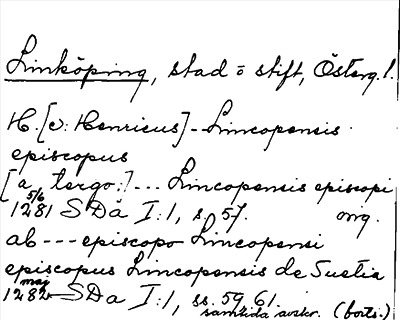 Linköping, stad o stift, Österg.l.
H. [ɔ: Henricus] - Lincopensis
episcopus
[a tergo:] --- Lincopensis episcopi
5/6
1281 SDä I:1, s. 57. orig.
ab --- episcopo Lincopensi
episcopus Lincopensis de Suetia
maj
1282 SDä I:1, ss. 59, 61.
samtida avskr. (forts.)